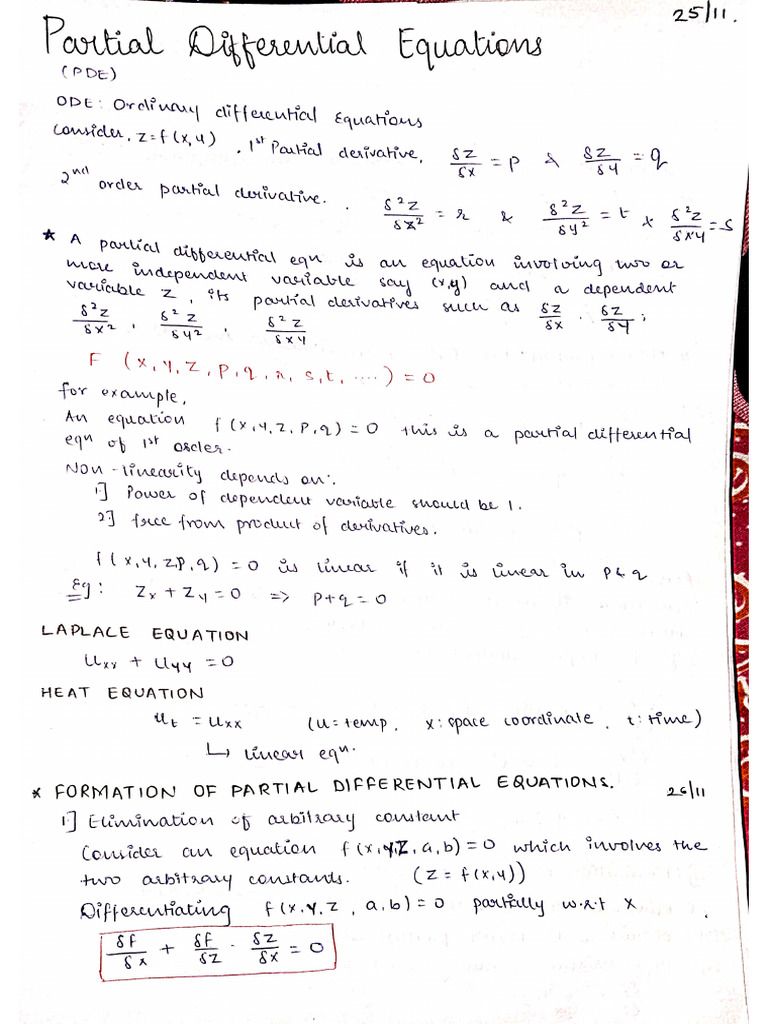 25/11.
Partial Differential Equations
(PDE)
ODE: Ordinary differential Equations
Consider, z=f(x,y) , 1st Partial derivative, δz/δx = p & δz/δy = q
2nd order partial derivative. . δ²z/δx² = r & δ²z/δy² = t x δ²z/δxy = s
* A partial differential eqn is an equation involving two or
more independent variable say (x,y) and a dependent
variable z, its partial derivatives such as δz/δx . δz/δy ;
δ²z/δx² , δ²z/δy² , δ²z/δxy
F (x, y, z, p, q, r, s, t, ....) = 0
for example,
An equation f(x,y,z,p,q)=0 this is a partial differential
eqn of 1st order.
Non-linearity depends on:
1] Power of dependent variable should be 1.
2] free from product of derivatives.
f(x,y,z,p,q)=0 is linear if it is linear in p & q
Eg: Zx + Zy = 0 => p+q=0
LAPLACE EQUATION
Uxx + Uyy = 0
HEAT EQUATION
Ut = Uxx (u=temp, x: space coordinate, t: time)
↳ linear eqn.
* FORMATION OF PARTIAL DIFFERENTIAL EQUATIONS. 26/11
1] Elimination of arbitrary constant
Consider an equation f(x,y,z,a,b)=0 which involves the
two arbitrary constants. (z = f(x,y))
Differentiating f(x,y,z,a,b)=0 partially w.r.t x
δf/δx + δf/δz . δz/δx = 0